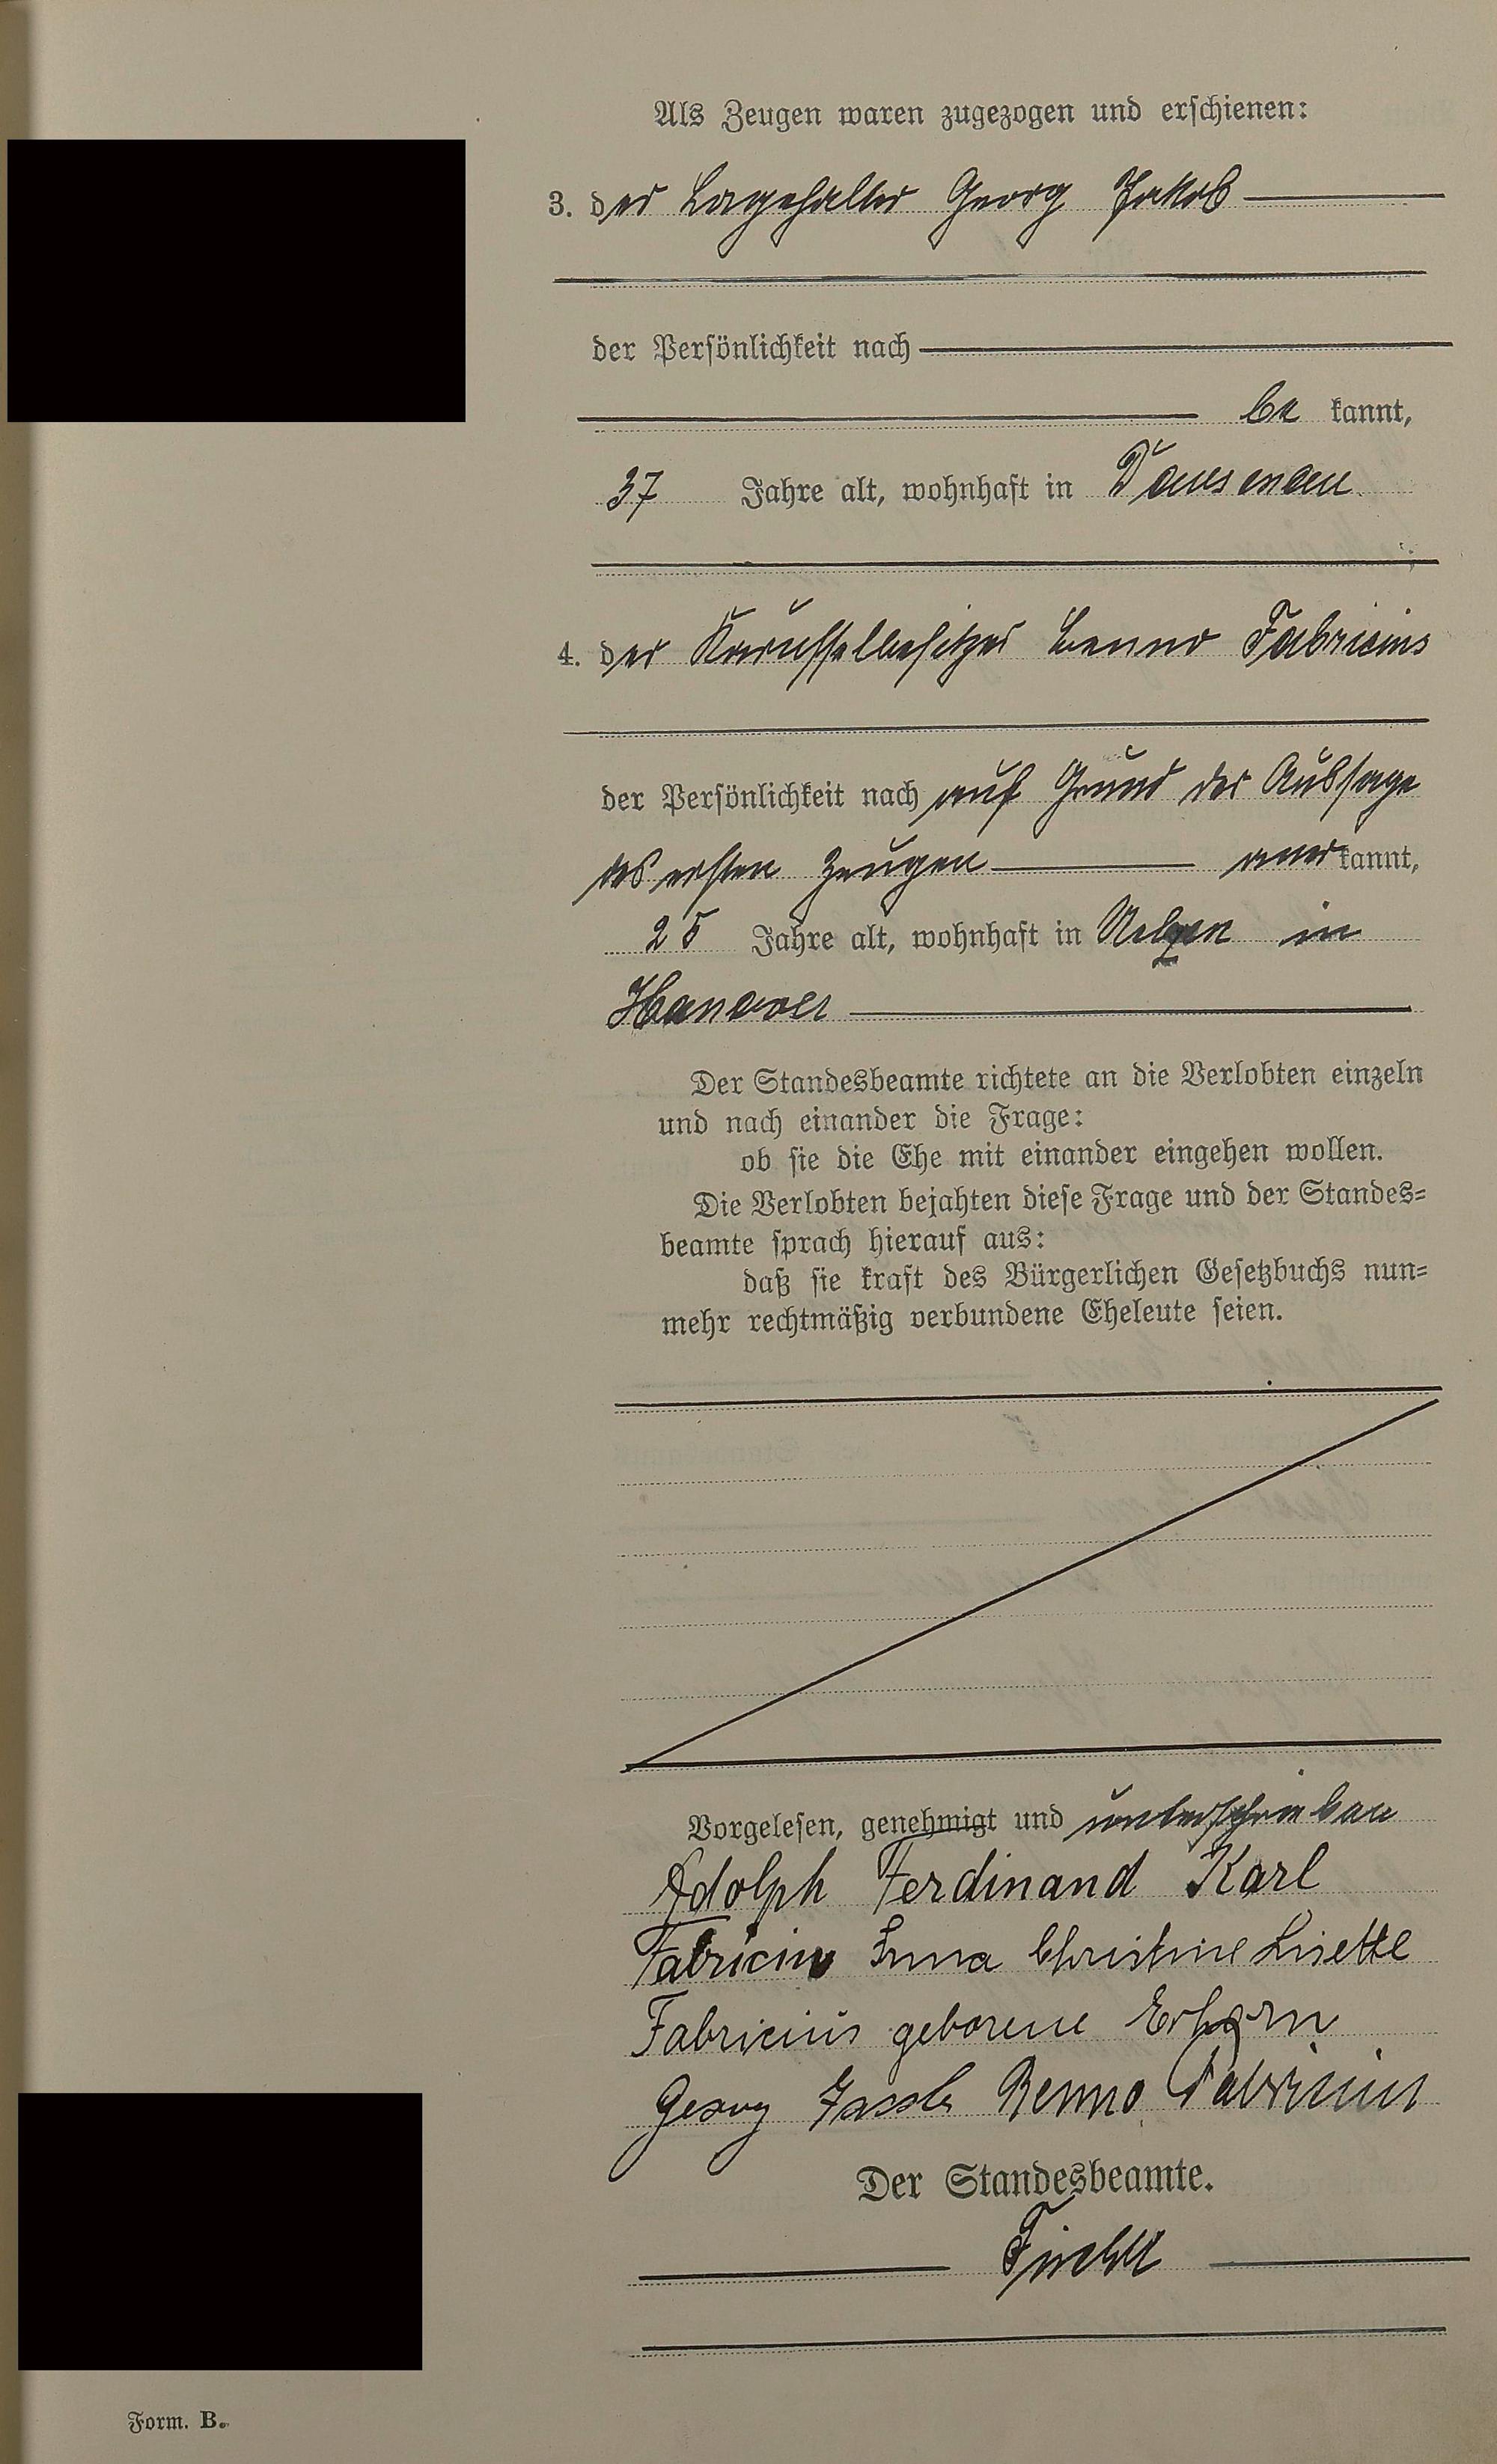 Als Zeugen waren zugezogen und erschienen:
3. der Lagerhalter Georg Jakob
der Persönlichkeit nach
be kannt,
37 Jahre alt, wohnhaft in Dausenau
4. der Karusselbesitzer Benno Fabricius
der Persönlichkeit nach auf Grund der Aussage
des ersten Zeugen anerkannt,
25 Jahre alt, wohnhaft in Uelzen in
Hanover
Der Standesbeamte richtete an die Verlobten einzeln
und nach einander die Frage:
ob sie die Ehe mit einander eingehen wollen.
Die Verlobten bejahten diese Frage und der Standes=
beamte sprach hierauf aus:
daß sie kraft des Bürgerlichen Gesetzbuchs nun=
mehr rechtmäßig verbundene Eheleute seien.
Vorgelesen, genehmigt und unterschrieben
Adolph Ferdinand Karl
Fabricius Anna Christine Lisette
Fabricius geborene
Georg Jakob Benno Fabricius
Der Standesbeamte.
Form. B.